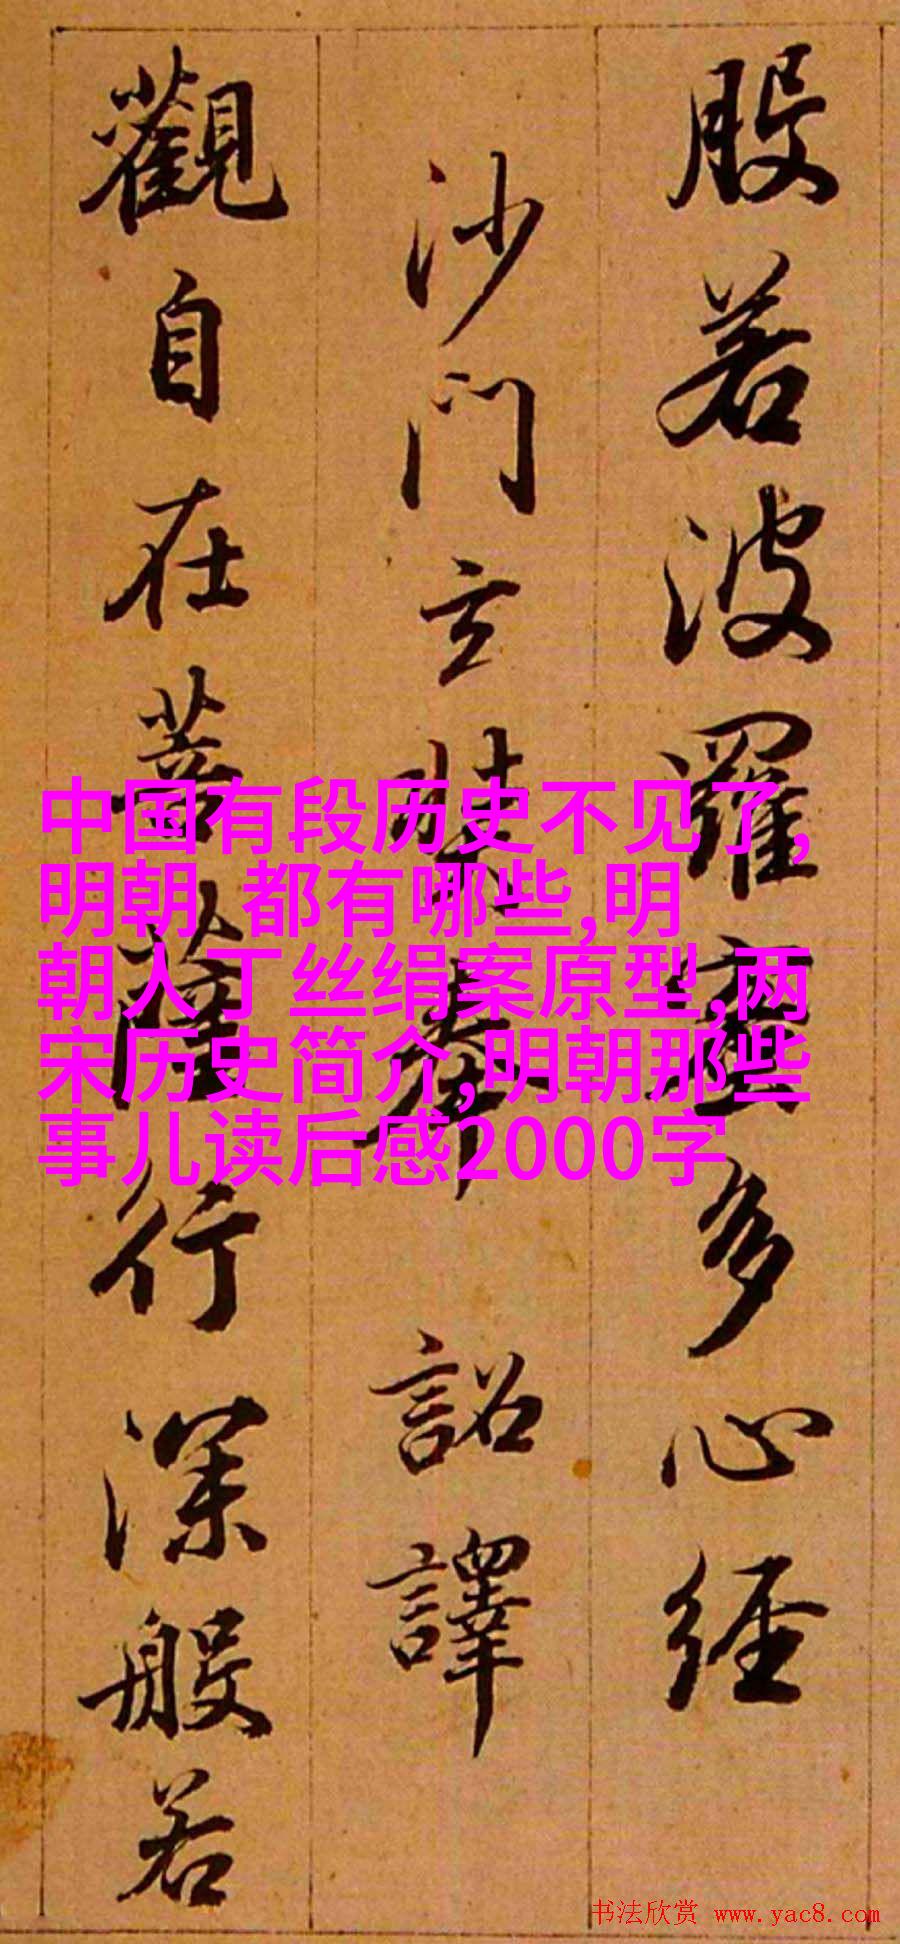 般若波羅蜜多心經
沙門玄奘奉 詔譯
觀自在菩薩行深般若
中国有段历史不见了,
明朝 都有哪些,明
朝人丁丝绢案原型,两
宋历史简介,明朝那些
事儿读后感2000字
书法欣赏 www.yac8.com